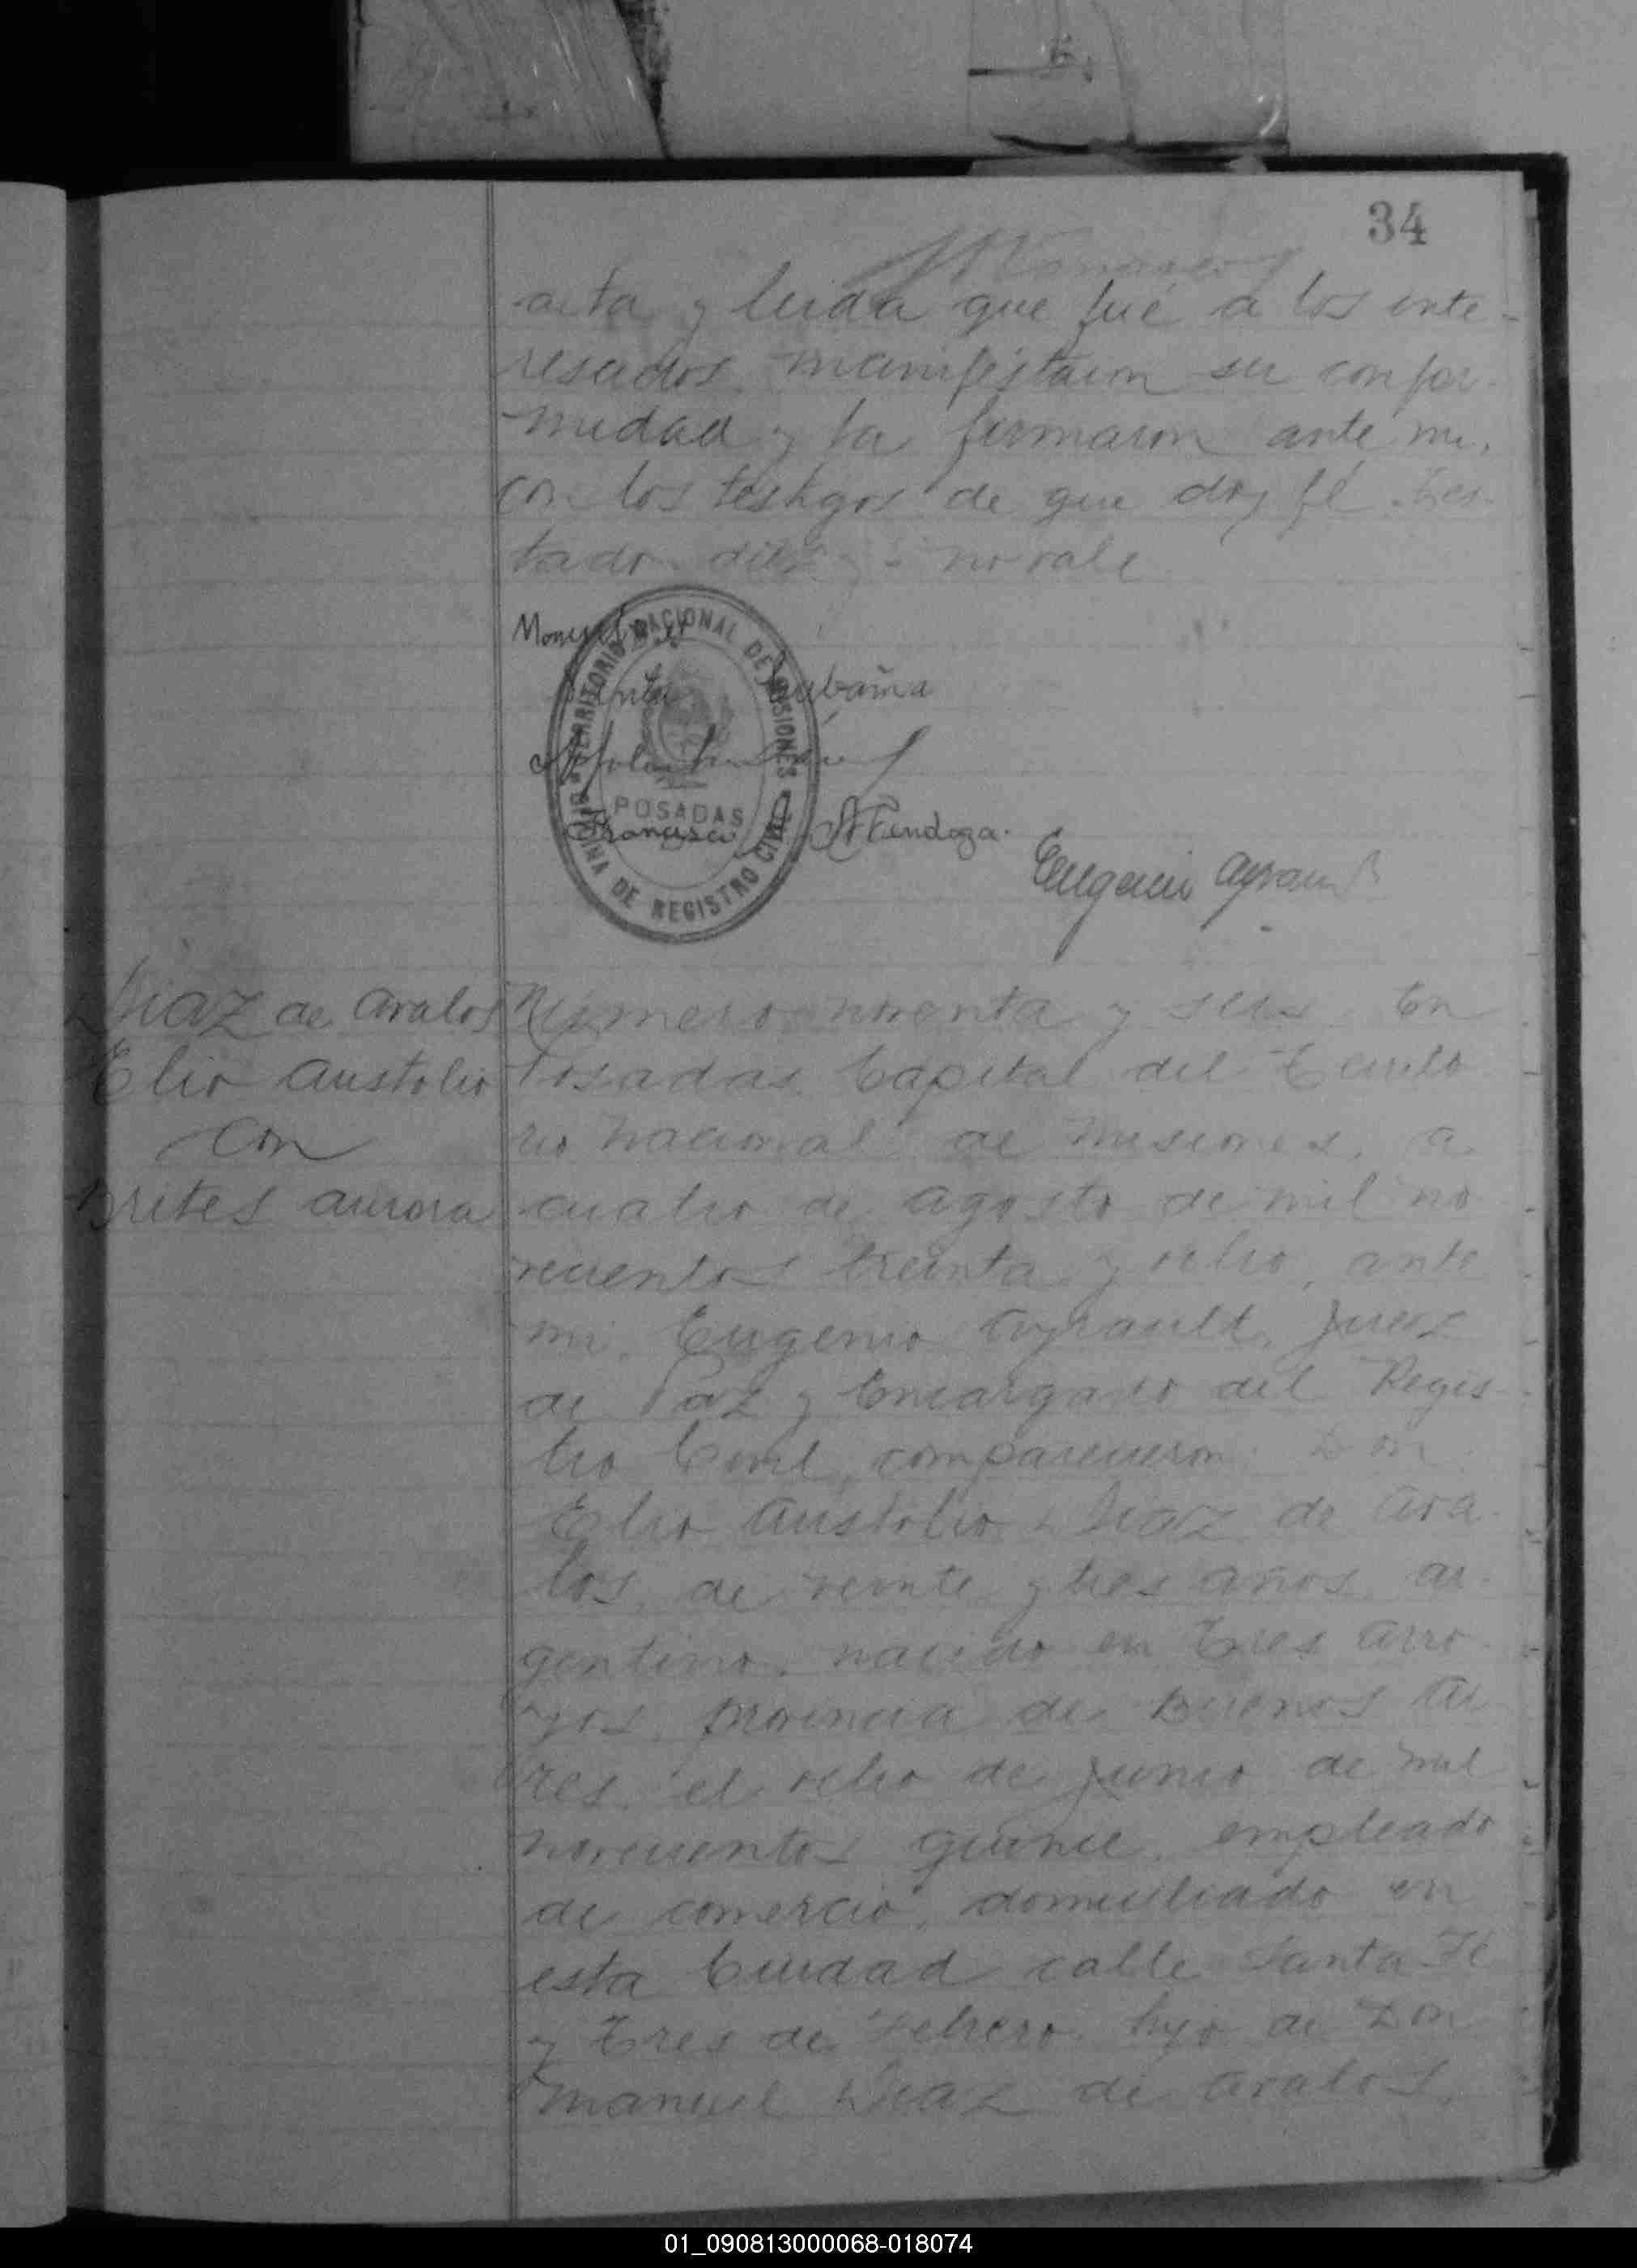 34
acta y leida que fué a los inte-
resados manifestaron su confor-
midad y la firmaron ante mi,
con los testigos de que doy fé. Tes-
tado diez y - no vale
TERRITORIO NACIONAL DE MISIONES
POSADAS
OFICINA DE REGISTRO CIVIL
Francisco Mendoza.
Eugenio Ayrault
Diaz de Avalos
Elio Austolio
con
Brites Aurora
Número noventa y seis. En
Posadas Capital del Territo
rio Nacional de Misiones, a
cuatro de Agosto de mil no
vecientos treinta y ocho, ante
mi Eugenio Ayrault, Juez
de Paz y Encargado del Regis-
tro Civil, comparecieron: Don
Elio Austolio Diaz de Ava-
los, de veinte y tres años, ar-
gentino, nacido en Tres Arro-
yos, provincia de Buenos Ai
res, el ocho de Junio de mil
novecientos quince, empleado
de comercio, domiciliado en
esta Ciudad calle Santa Fé
y Tres de Febrero, hijo de Don
Manuel Diaz de Avalos,
01_090813000068-018074